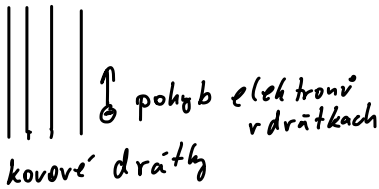 pohyb elektronů
v drátkach
kovové drátky